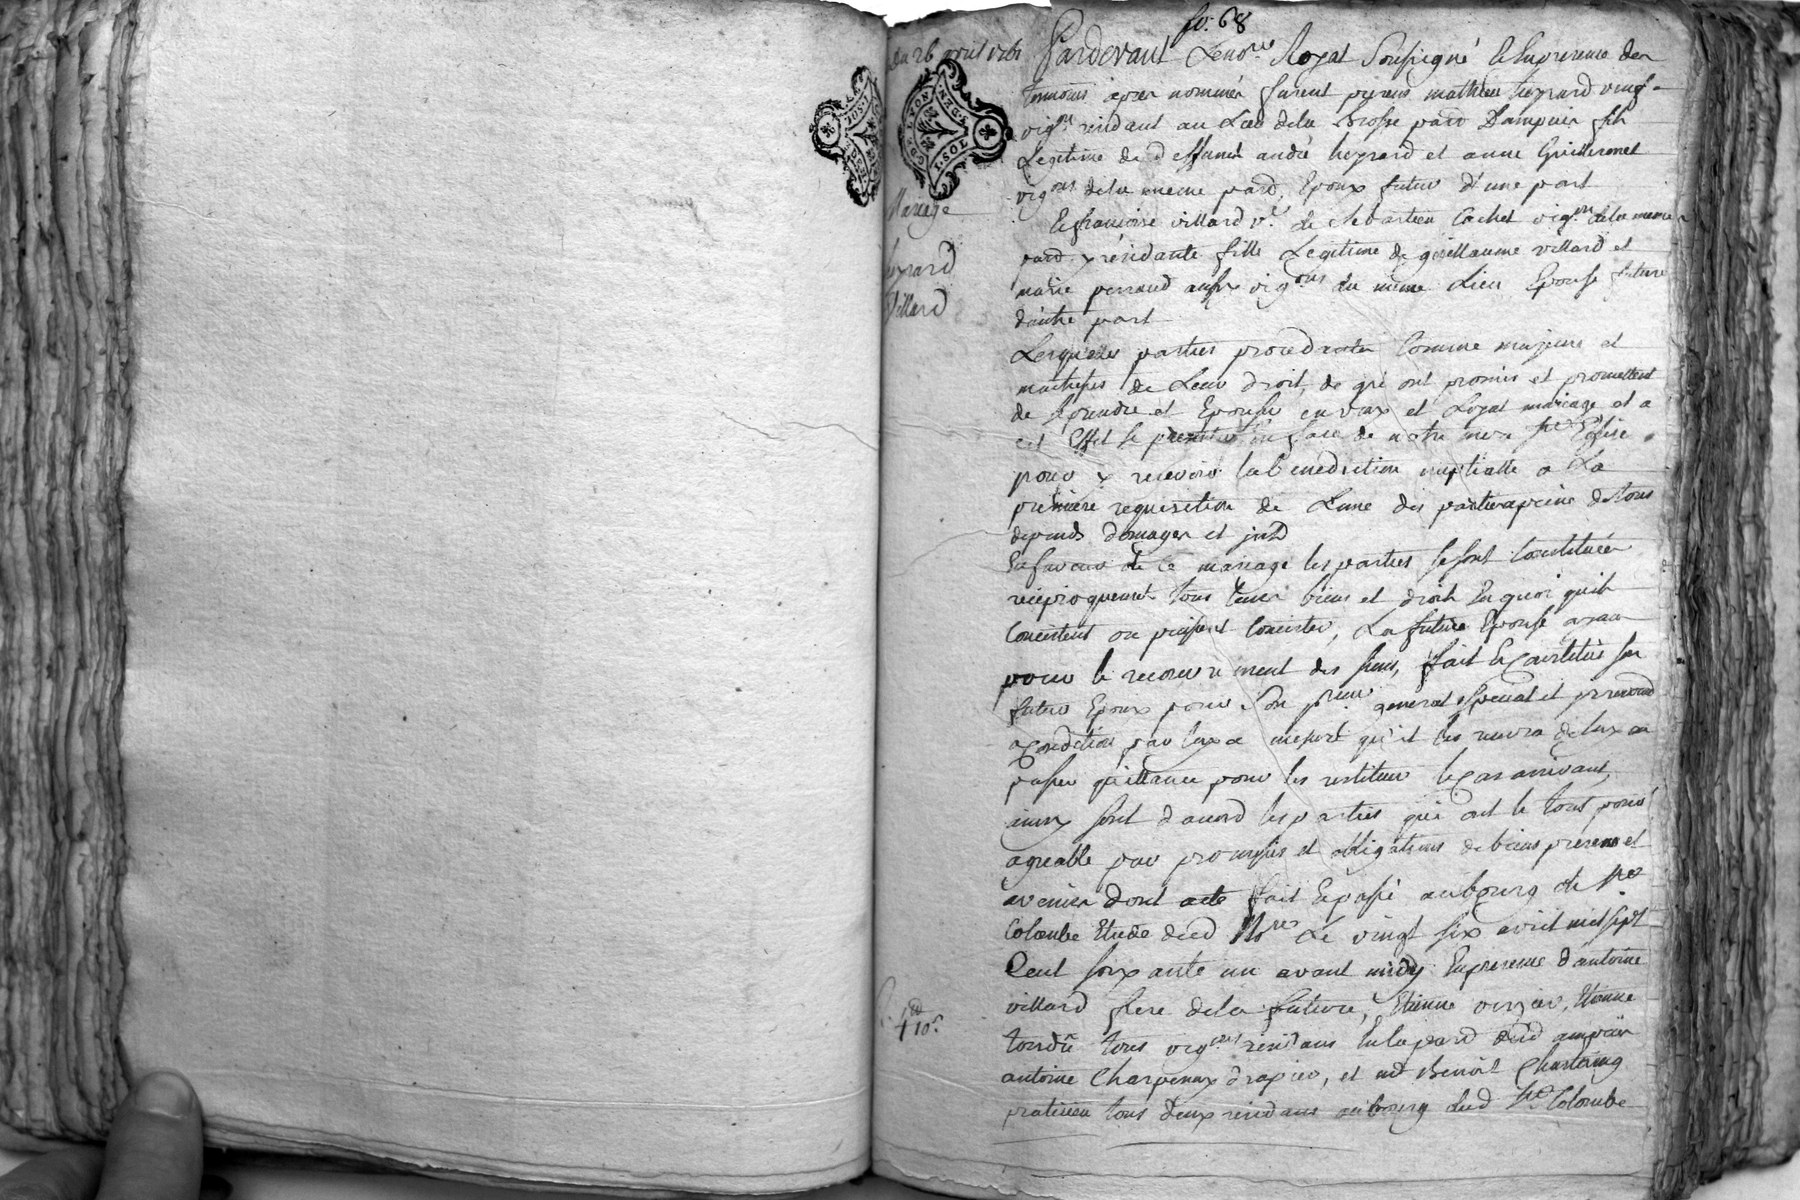 fo. 68
Du 26 avril 1761
Mariage
heyrard
Villard
Pardevant Le no.re Royal Soussigné Et En presence des
temoins apres nommés furent presens mathieu heyrard
vig.on residant au Lieu de la Brosse par.se Dampuis fils
Legitime de deffunts andré heyrard et anne Guilleronet
vig.ons de la meme par.se Epoux futur d'une part
Et françoise villard v.e de Sebastien Cachet vig.on de la meme
par.se y residante fille Legitime de guillaume villard et
marie perraud aussy vig.ons du meme Lieu Epouse future
d'autre part
Lesquelles parties procedantes Comme majeurs et
maitresses de Leur droit, de gré ont promis et promettent
de se prendre et Epouser en vray et Loyal mariage et a
cet Effet se presenter En face de notre mere s.te Eglise
pour y recevoir la benediction nuptialle a La
premiere requisition de Lune des parties a peine de tous
depends domages et intd
En faveur de Ce mariage les parties se sont Constituées
reciproquement tous leurs biens et droits En quoi quils
Consistent ou puissent Consister, La future Epouse ayant
pour le recouvrement des siens, fait Et Constitué son
futur Epoux pour Son p.reur general special et
a Condition par luy a mesure qu'il les recevra de luy en
passer quittance pour les restituer le Cas arrivant,
ainsy sont d'acord les parties qui ont le tout
agreable par promesses et obligations de biens presens et
avenir dont acte fait Et passé au bourg de s.te
Colombe Etude dud no.re Le vingt six avril mil sept
Cent soixante un avant midy En presence d'antoine
villard frere de la future, Etienne, Etienne
tous vig.ons residans En la par.se dud ampuis
antoine Charpenay drapier, et m.d Benoit
praticien tous deux residans au bourg dud s.te Colombe